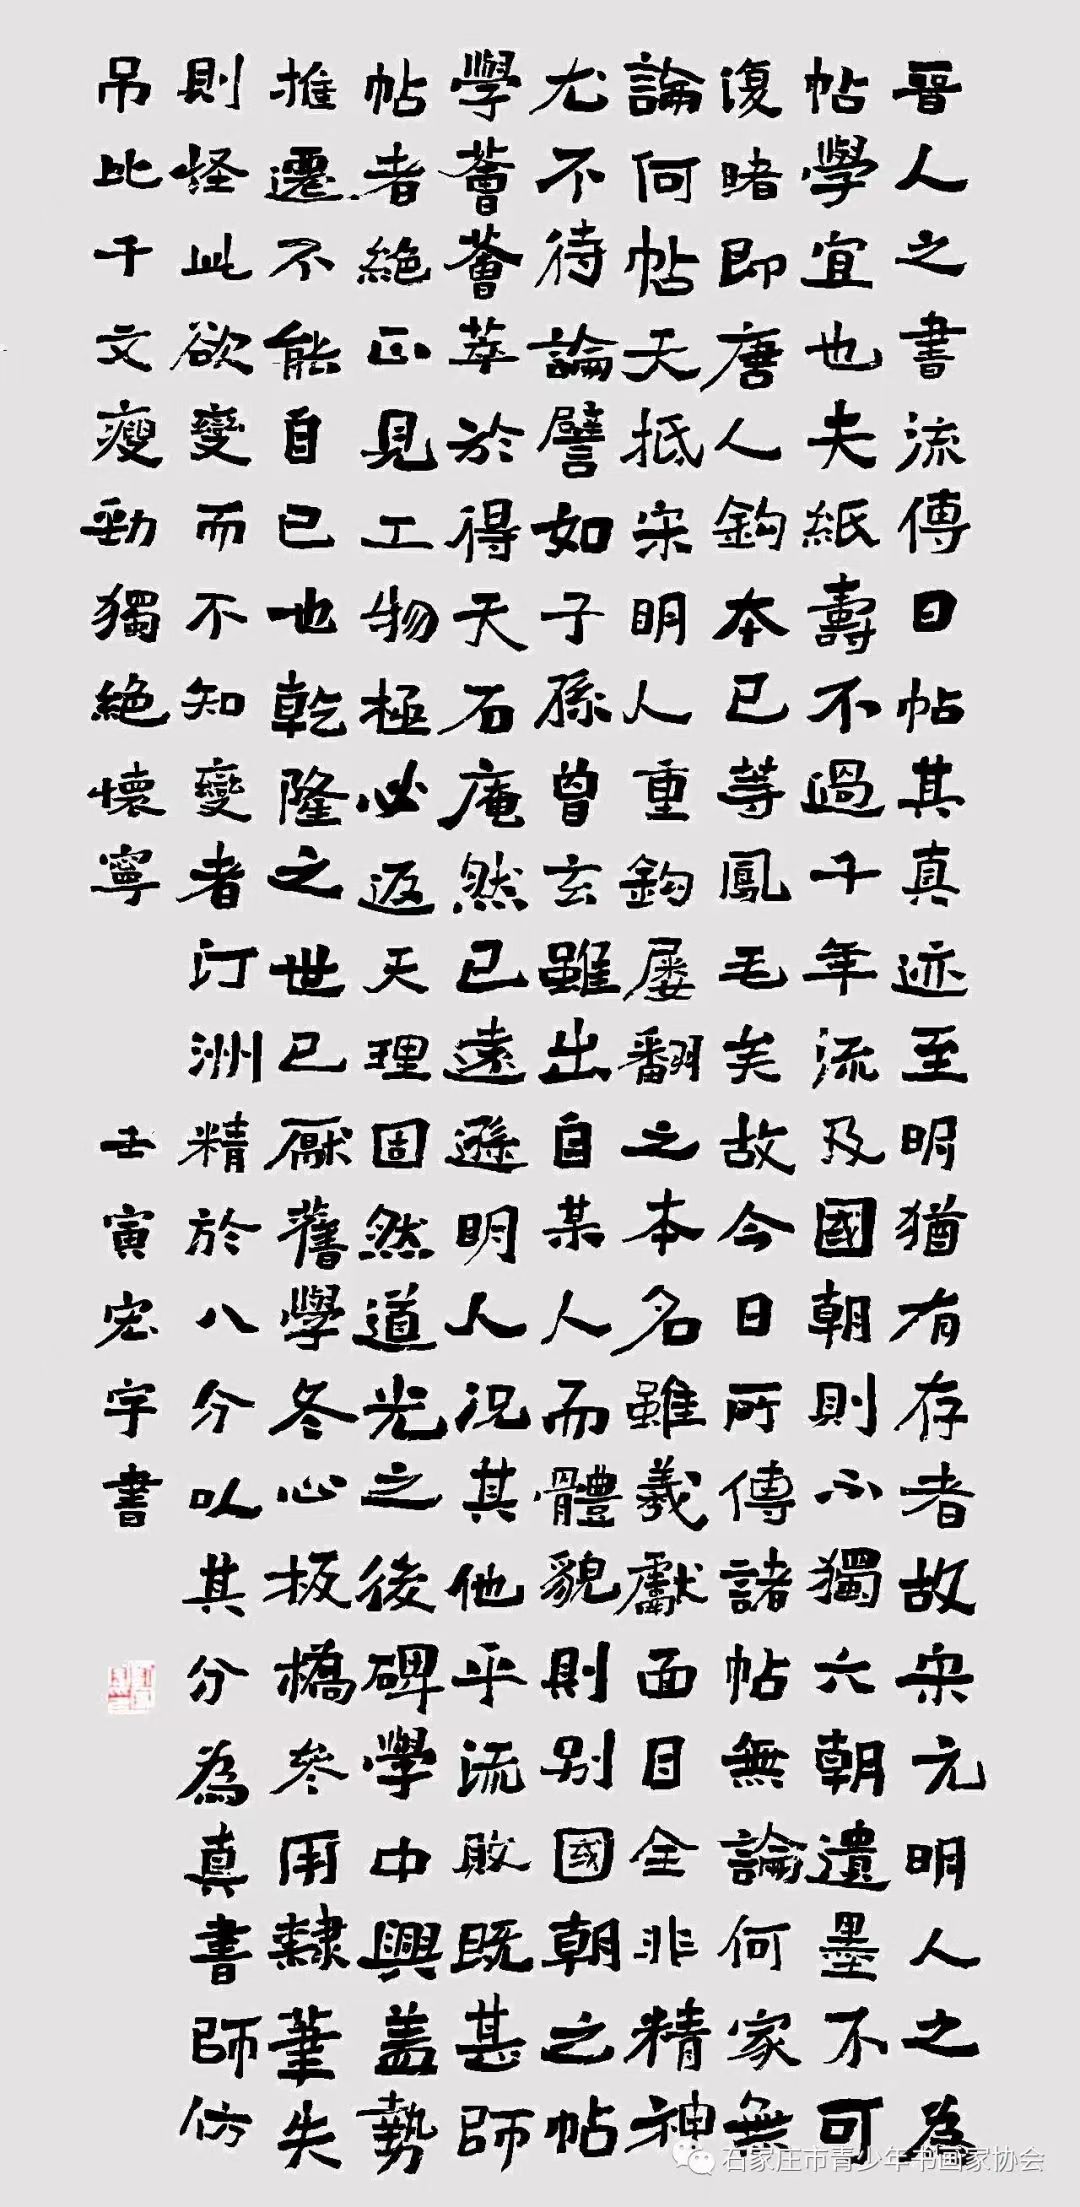 晉人之書流傳曰帖其真迹至明猶有存者故宋元明人之為
帖學宜也夫紙壽不過千年流及國朝則不獨六朝遺墨不可
復睹即唐人鈎本已等鳳毛矣故今日所傳諸帖無論何家無
論何帖大抵宋明人重鈎屡翻之本名雖羲獻面目全非精神
尤不待論譬如子孫曾玄雖出自某人而體貌則别國朝之帖
學薈薈萃於得天石庵然已遠遜明人況其他乎流敗既甚師
帖者絶不見工物極必返天理固然道光之後碑學中興盖勢
推遷不能自已也乾隆之世已厭舊學冬心板橋參用隸筆失
則怪此欲變而不知變者汀洲精於八分以其分為真書師仿
吊比干文瘦勁獨絶懷寧
壬寅宏宇書
石家庄市青少年书画家协会